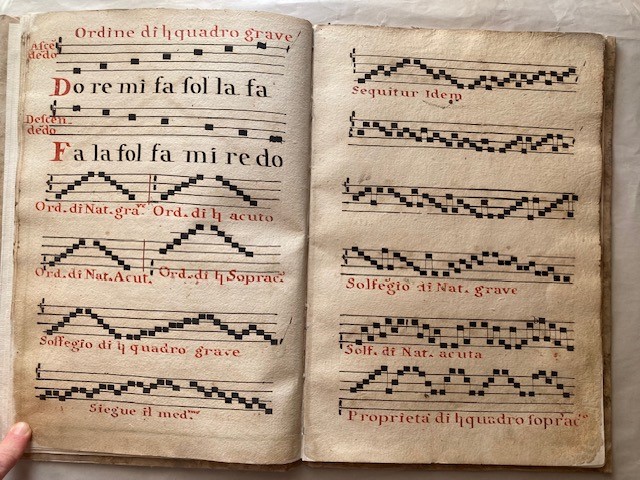 Ordine di ♮ quadro grave
Asce-
dedo
Do re mi fa sol la fa
Descen-
dedo
Fa la sol fa mi re do
Ord. di Nat. gra.ve Ord. di ♮ acuto
Ord. di Nat. Acut. Ord. di ♮ Soprac.
Solfegio di ♮ quadro grave
Siegue il med.mo
Sequitur Idem
Solfegio di Nat. grave
Solf. di Nat. acuta
Proprieta di ♮ quadro soprac